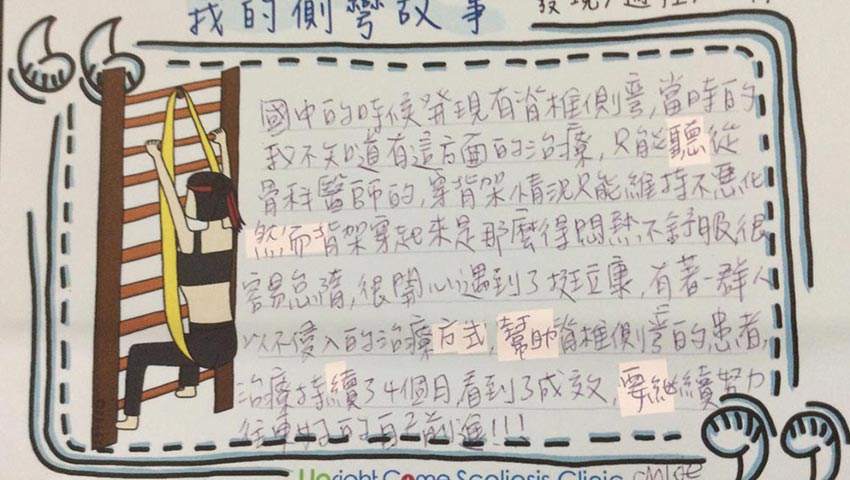 我的側彎故事
國中的時候發現有脊椎側彎,當時的
我不知道有這方面的治療,只能聽從
骨科醫師的,穿背架情況只能維持不惡化
然而背架穿起來是那麼得悶熱不舒服很
容易怠惰,很開心遇到了挺立康,有著一群人
以不侵入的治療方式,幫助脊椎側彎的患者,
治療持續了4個月,看到了成效,要繼續努力
往更好的自己前進!!!
Upright Come Scoliosis Clinic